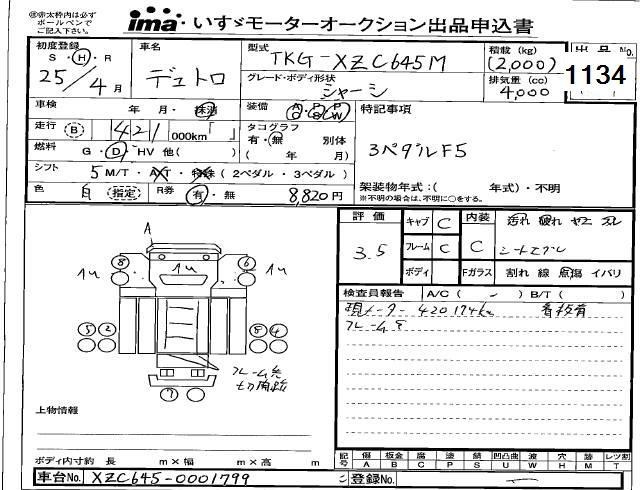 ※赤太枠内は必ず
ボールペンで
ご記入下さい。
ima いすゞモーターオークション出品申込書
初度登録 S・H・R 25/4月
車名 デュトロ
型式 TKG-XZC645M
グレード・ボディ形状 シャーシ
積載(kg) (2,000)
排気量(cc) 4,000
出品No. 1134
車検 年 月・抹消
装備 A/C P/S P/W
特記事項
走行 B 421 000km「 」
タコグラフ 有・無 別体
( 年 月)
3ペダルF5
燃料 G・D・HV 他( )
シフト 5M/T・A/T・特殊(2ペダル・3ペダル)
架装物年式:( 年式)・不明
※不明の場合は、不明に○をする。
色 白 指定 R券 有・無 8,820円
評価 3.5
キャブ C 内装 C 汚れ 破れ ヤニ スレ
フレーム C
ボディ Fガラス 割れ 線 点傷 イバリ
検査員報告 A/C( ー ) B/T( )
現メーター 420174km 看板有
A
8 6
1U 1U 1U
5 2 8 4
7
上物情報
ボディ内寸約 長 m×幅 m×高 m
記号 傷A 板金B 腐C 塗P 錆S 凹凸曲U 波W 穴H 跡M レツ割T
車台No. XZC645-0001799
登録No.